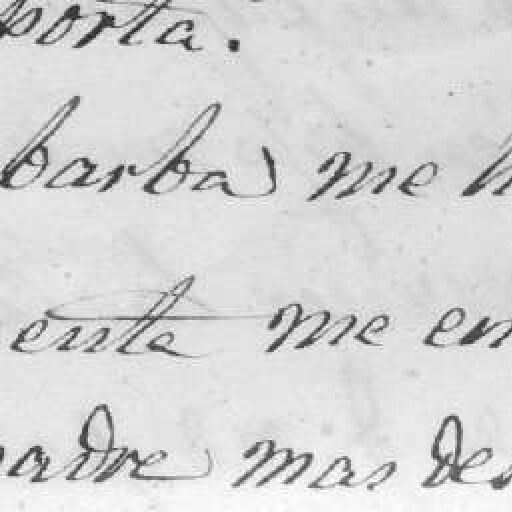 porta.
barba me h
enta me en
adre mas des